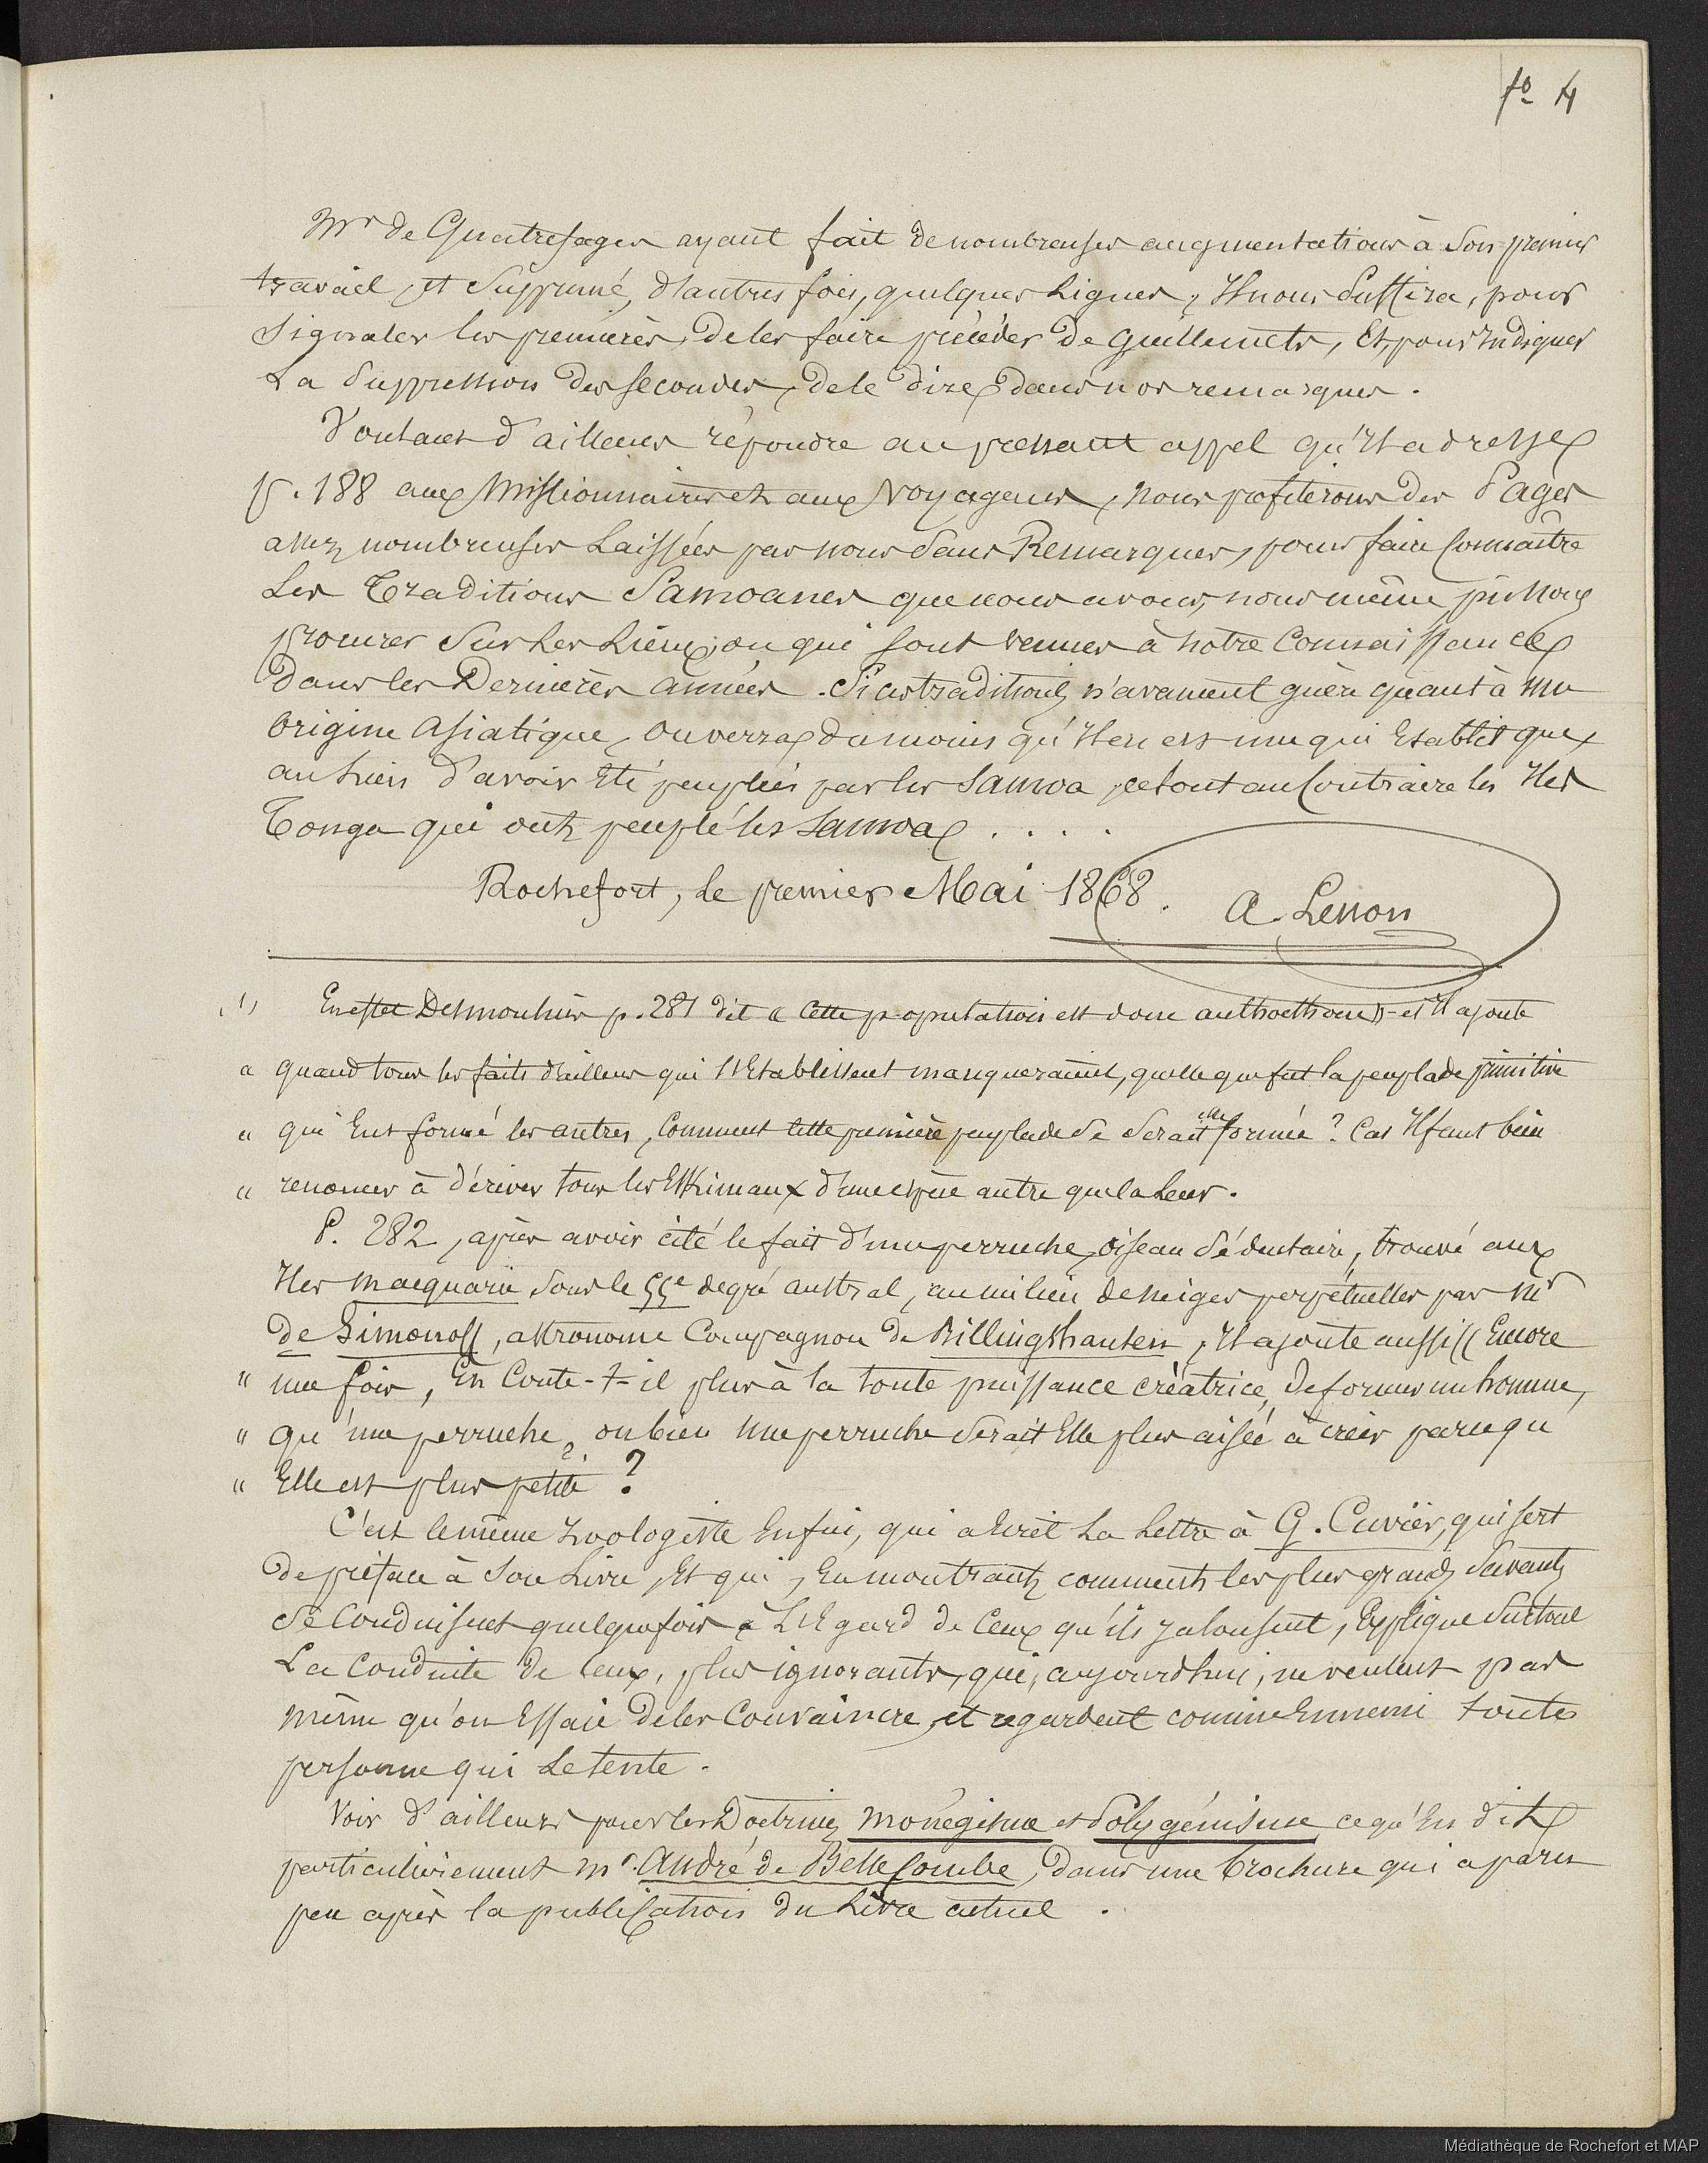 fo 4
Mr de Quatrefages ayant fait de nombreuses augmentations à Son premier
travail, et Supprimé, d'autres fois, quelques Lignes, Il nous Suffira, pour
Signaler les premières, de les faire précéder de Guillemets, Et, pour Indiquer
La Suppression des secondes, de le dire dans nos remarques.
Voulant d'ailleurs répondre au pressant appel qu'Il adresse
p. 188 aux Missionnaires et aux Voyageurs, Nous profiterons des Pages
assez nombreuses Laissées par nous Sans Remarques, pour faire Connaître
Les Traditions Samoanes que nous avons, nous même pu Nous
procurer Sur Les Lieux, ou qui sont venues à notre Connaissance
dans les Dernières années. Si ces traditions n'avancent guère quant à une
Origine Asiatique, On verra du moins qu'Il en est une qui Etablit que
au Lieu d'avoir Eté peuplées par les Samoa, ce sont au Contraire les Iles
Tonga qui ont peuplé les Samoa . . . .
Rochefort, Le premier Mai 1868.
A. Lesson
(1) En effet Desmoulins p. 281 dit « Cette population est donc authocthone » et Il ajoute
« quand tous les faits d'ailleurs qui l'Etablissent manqueraient, quelle que fut la peuplade primitive
« qui Eut formé les autres, Comment Cette première peuplade se Serait elle formée? Car Il faut bien
« renoncer à dériver tous les Eskimaux d'une espèce autre que la Leur.
P. 282, après avoir cité le fait d'une perruche, oiseau Sédentaire, trouvé aux
Iles Macquarie Sous le 55e degré austral, au milieu de neiges perpétuelles par Mr
de Simonoff, astronome Compagnon de Billingshausen, Il ajoute aussi « Encore
« une fois, En Coute-t-il plus à la toute puissance créatrice, de former un homme,
« qu'une perruche, ou bien Une perruche Serait Elle plus aisée à créer parce qu
« Elle est plus petite ?
C'est le même Zoologiste Enfin, qui a Ecrit La Lettre à G. Cuvier, qui sert
de préface à Son Livre, Et qui, En montrant comment les plus grands Savants
Se Conduisent quelquefois à L'Egard de Ceux qu'ils jalousent, Explique Surtout
La Conduite de Ceux, plus ignorants, qui, aujourd'hui, ne veulent pas
même qu'on Essaie de les Convaincre, et regardent comme Ennemi toute
personne qui Le tente.
Voir d'ailleurs pour les Doctrines Monégisme et Polygénisme ce qu'En dit
particulièrement Mr. André de Bellecombe, dans une brochure qui a paru
peu après la publication du Livre actuel.
Médiathèque de Rochefort et MAP